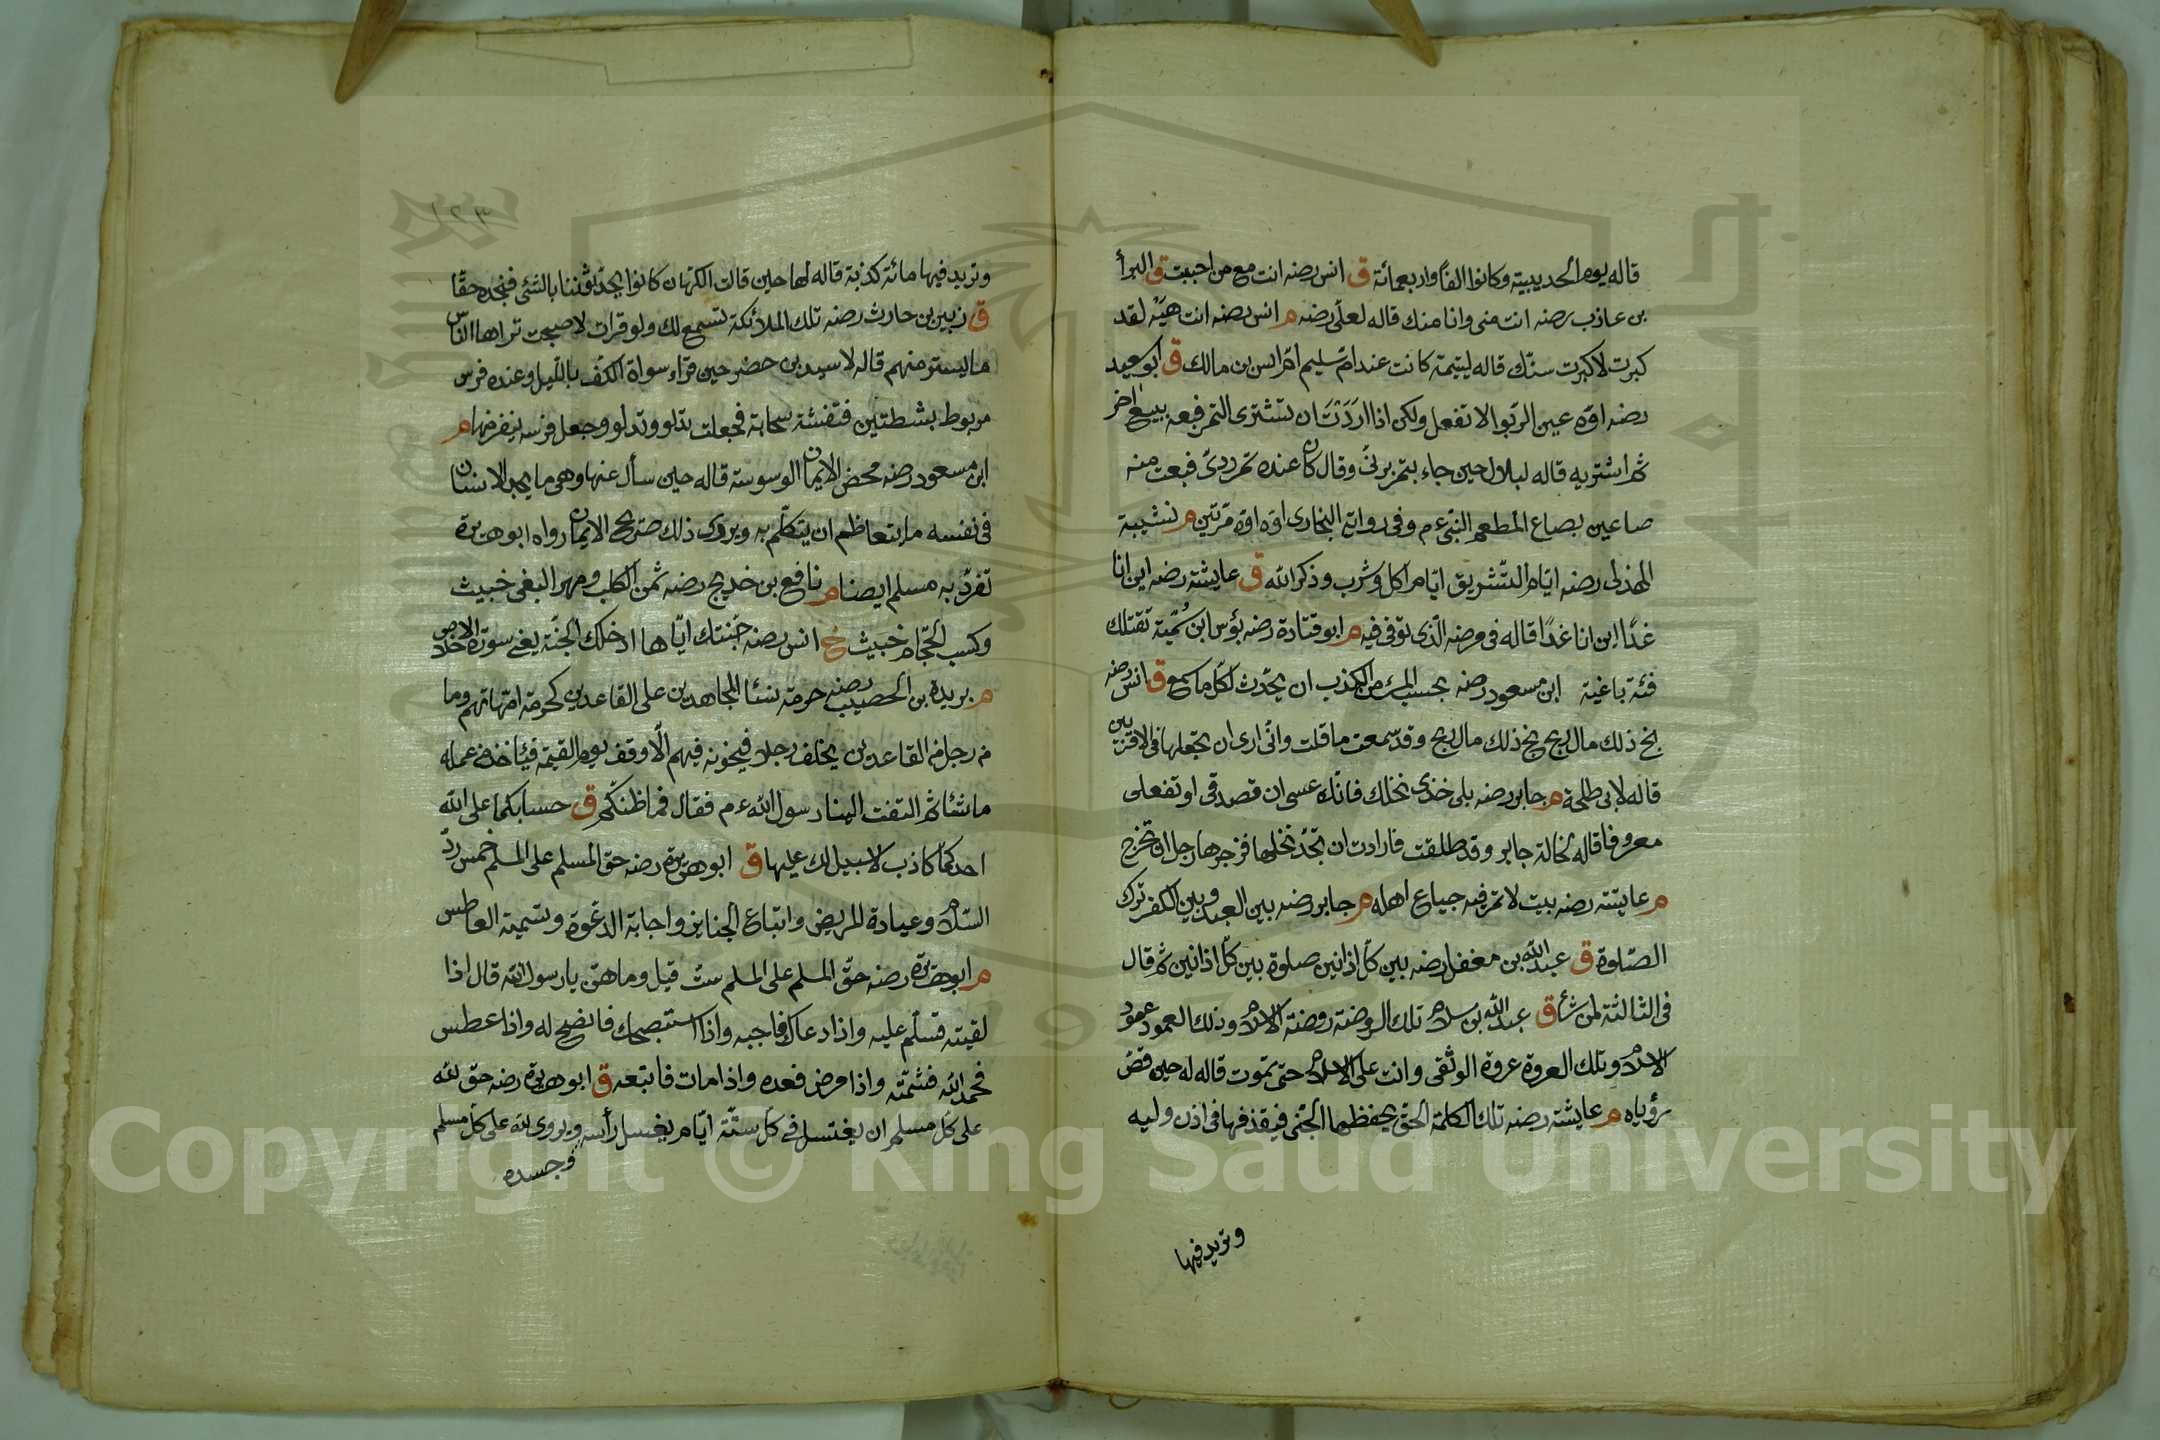 قاله يوم الحديبية وكانوا الفا واربعمائة ق انس رضه انت مع من احببت ق البرأ
بن عاذب رضه انت منى وانا منك قاله لعلى رضه م انس رضه انت هيه لقد
كبرت لا كبرت سنك قاله ليتيمة كانت عند ام سليم ام انس بن مالك ق ابو سعيد
رضه اوه عين الربوا لا تفعل ولكن اذا اردت ان تشترى التمر فبعه ببيع اخر
ثم اشتر به قاله لبلال حين جاء بتمر برنى وقال كان عنده تمر ردئ فبعت منه
صاعين بصاع لمطعم النبى ءم وفى رواية البخارى اوه اوه مرتين م نشيبة
الهذلى رضه ايام التشريق ايام اكل وشرب وذكر الله ق عايشة رضه اين انا
غدا اين انا غدا قاله فى مرضه الذى توفى فيه م ابو قتادة رضه بؤس ابن سمية تقتلك
فئة باغية ابن مسعود رضه بحسب المرء من الكذب ان يحدث لكل ما سمع ق انس رضه
بخ ذلك مال ربح بخ ذلك مال ربح وقد سمعت ما قلت وانى ارى ان تجعلها فى الاقربين
قاله لابى طلحة م جابر رضه بلى خذى نخلك فانك عسى ان تصدقى او تفعلى
معروفا قاله لخالة جابر وقد طلقت فارادت ان تجد نخلها فزجرها رجل ان تخرج
م عايشة رضه بيت لا تمر فيه جياع اهله م جابر رضه بين العبد وبين الكفر ترك
الصلوة ق عبد الله بن مغفل رضه بين كل اذانين صلوة بين كل اذانين ثم قال
فى الثالثة لمن شاء ق عبد الله بن سلام تلك الروضة روضة الاسلام وذلك العمود عمود
الاسلام وتلك العروة عروة الوثقى وانت على الاسلام حتى تموت قاله له حين قص
رؤياه م عايشة رضه تلك الكلمة الحق يحفظها الجنى فيقذفها فى اذن وليه
وتريد فيها
١٢٣
وتريد فيها مائة كذبة قاله لها حين قالت الكهان كانوا يحدثوننا بالشئ فنجده حقا
ق زبين بن حارث رضه تلك الملائكة تسمع لك ولو قرات لاصبحت تراها الناس
ما يستتر منهم قاله لاسيد بن حضر حين قراء سواة الكف بالليل وعنده فرس
مربوط بشطتين فتغشته سحابة فجعلت تدلو وتدلو وجعل فرسه ينفر منها م
ابن مسعود رضه محض الايمان الوسوسة قاله حين سأل عنها وهى ما يجد الانسان
فى نفسه ما يتعاظم ان يتكلم به ويروى ذلك صريح الايمان رواه ابو هريرة
تفرد به مسلم ايضا م نافع بن خديج رضه ثمن الكلب ومهر البغى خبيث
وكسب الحجام خبيث خ انس رضه حبتك اياها ادخلك الجنة يعنى سورة الاخلاص
م بريدة بن الحصيب رضه حرمة نساء المجاهدين على القاعدين كحرمة امهاتهم وما
من رجل من القاعدين يخلف رجلا فيخونه فيهم الا وقف يوم القيمة فياخذ من عمله
ما شاء ثم التفت الينا رسول الله ءم فقال فما ظنكم ق حسابكما على الله
احدكما كاذب لا سبيل لك عليها ق ابو هريرة رضه حق المسلم على المسلم خمس رد
السلام وعيادة المريض واتباع الجنايز واجابة الدعوة وتشميت العاطس
م ابو هريرة رضه حق المسلم على المسلم ست قيل وما هن يا رسول الله قال اذا
لقيته فسلم عليه واذا دعاك فاجبه واذا استنصحك فانصح له واذا عطس
فحمد الله فشمته واذا مرض فعده واذا مات فاتبعه ق ابو هريرة رضه حق لله
على كل مسلم ان يغتسل فى كل ستة ايام يغسل رأسه ويروى لله على كل مسلم
وجسده
Copyright © King Saud University